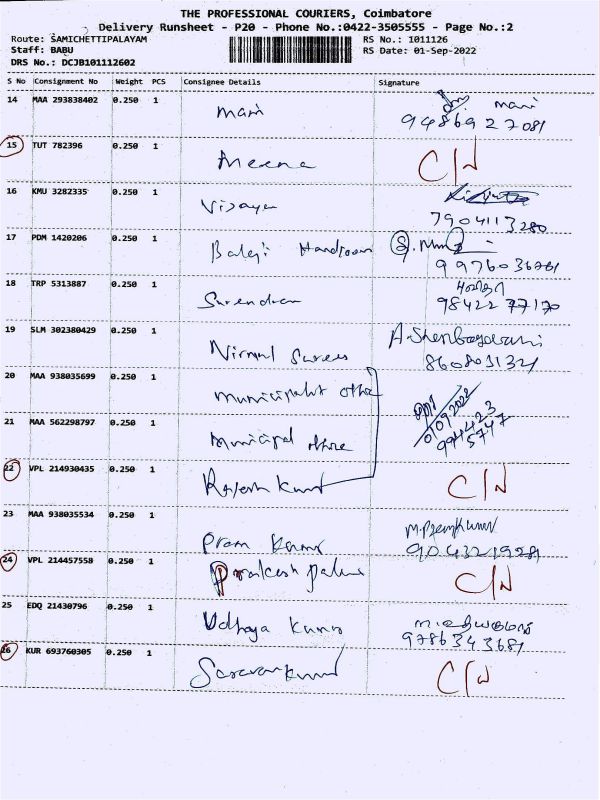 THE PROFESSIONAL COURIERS, Coimbatore
Delivery Runsheet - P20 - Phone No.:0422-3505555 - Page No.:2
Route: SAMICHETTIPALAYAM RS No.: 1011126
Staff: BABU RS Date: 01-Sep-2022
DRS No.: DCJB101112602
S No Consignment No Weight PCS Consignee Details Signature
14 MAA 293838402 0.250 1 mani mani
9486927081
15 TUT 782396 0.250 1 Meena C/N
16 KMU 3282335 0.250 1 Vijaya
7904113280
17 PDM 1420206 0.250 1 Balaji Handloom
9976036781
18 TRP 5313887 0.250 1 Surendran
9842277170
19 SLM 302380429 0.250 1 Nirmal Surees A.Shenbagavani
860803132
20 MAA 938035699 0.250 1 municipalit office
01/09/2022
21 MAA 562298797 0.250 1 municipal office 994423
5747
22 VPL 214930435 0.250 1 Rajesh Kumar C/N
23 MAA 938035534 0.250 1 Prem Kumar M.Premkumar
9043219281
24 VPL 214457558 0.250 1 Prakash C/N
25 EDQ 21430796 0.250 1 Udhaya Kumar
9786343681
26 KUR 693760305 0.250 1 Saravankumar C/N